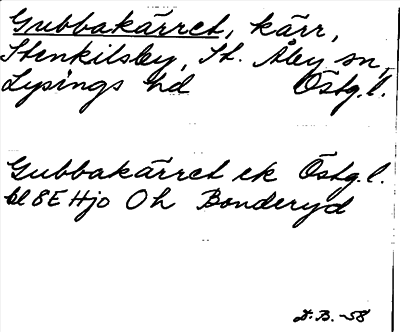 Gubbakärret, kärr,
Stenkilsby, St. Åby sn,
Lysings hd Östg.l.
Gubbakärret ek Östg.l.
bl 8E Hjo Oh Bonderyd
D.B.-58